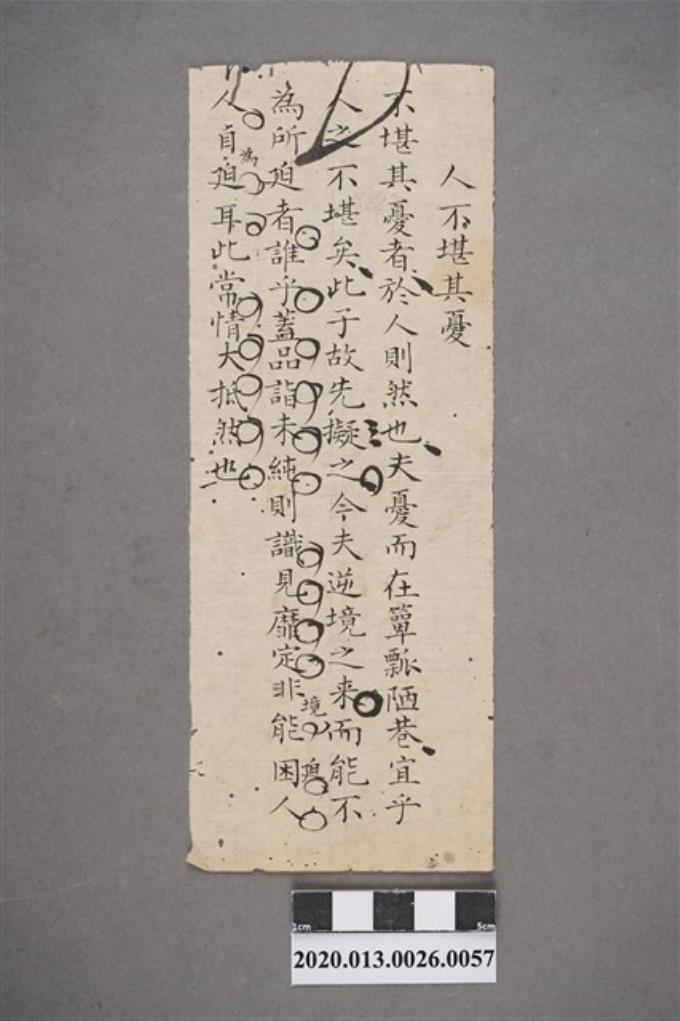 人不堪其憂
不堪其憂者於人則然也夫憂而在簞瓢陋巷宜乎
人之不堪矣此子故先擬之今夫逆境之来而能不
為所迫者誰乎蓋品詣未純則識見靡定非境能困人
人自為迫耳此常情大抵然也
迫
1cm
5cm
2020.013.0026.0057